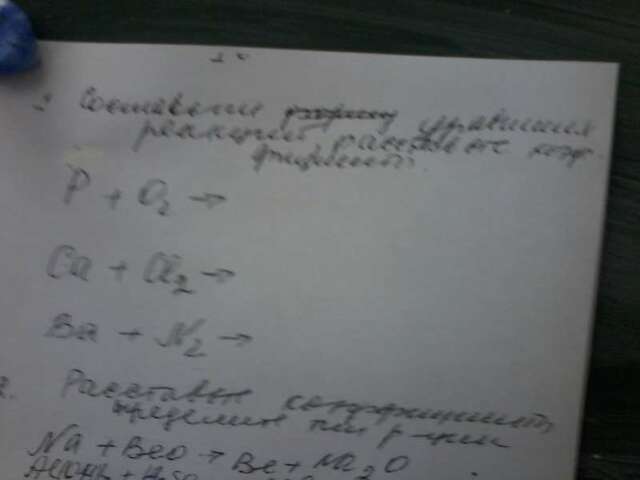 1 Составьте уравнения
реакций расставьте коэф-
фициенты.
P + O₂ →
Ca + Cl₂ →
Ba + N₂ →
2. Расставьте коэффициенты
определите тип р-ции
Na + BeO → Be + Na₂O